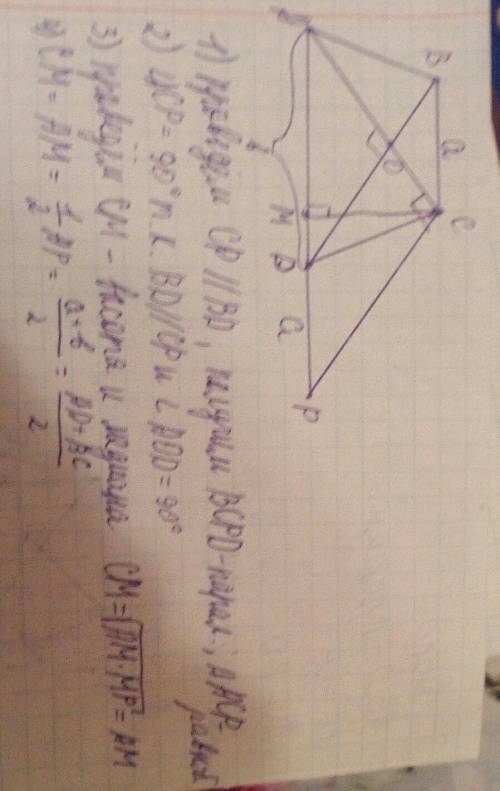 B a C
O
A M D a P
b
1) проведём CP||BD, получим BCPD-парал.; △ACP-
равноб
2) ∠ACP=90° т.к. BD||CP и ∠AOD=90°
3) проведём CM - высота и медиана CM=√AM·MP=AM
4) CM=AM=1/2 AP= a+b/2 = AD+BC/2